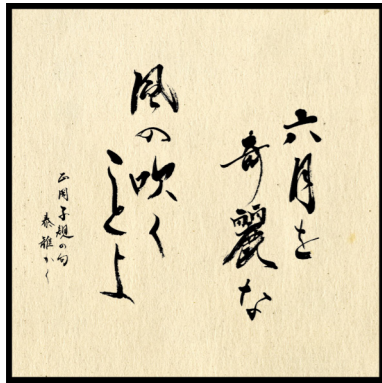 六月を
奇麗な
風の吹く
ことよ
正岡子規の句
泰雅かく